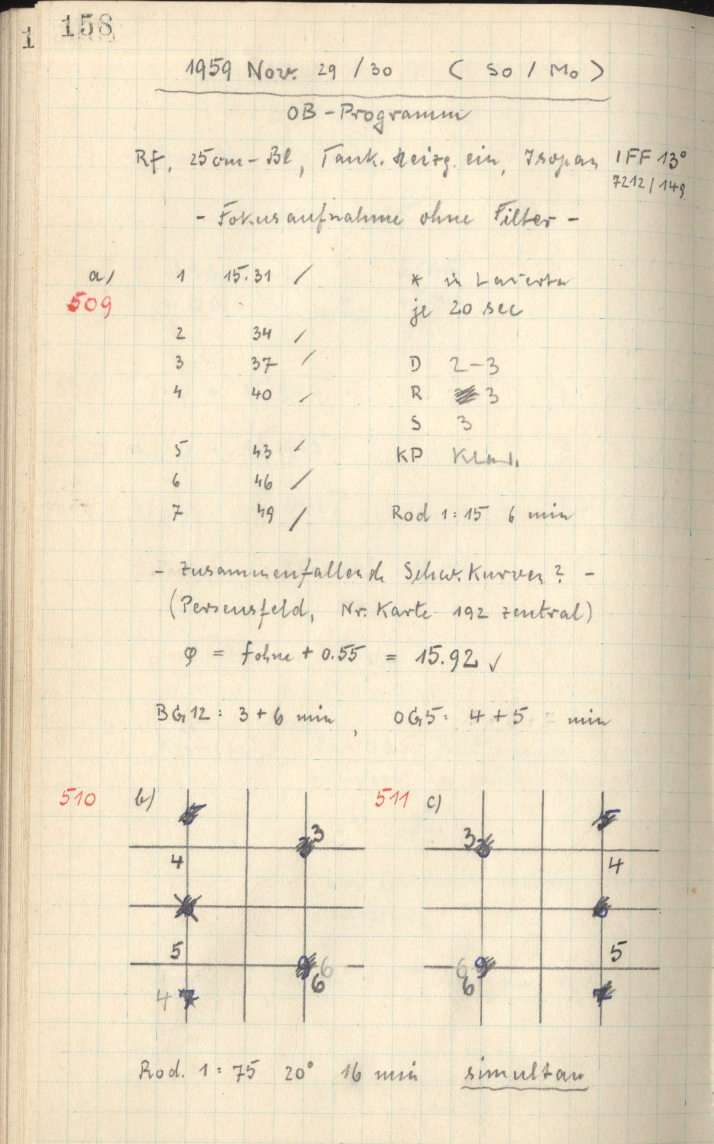 1 158
1959 Nov. 29 / 30 ( So / Mo )
OB-Programm
Rf, 25cm-Bl, Tank. Heizg. ein, Isopan IFF 13°
7212/149
- Fokusaufnahme ohne Filter -
a) 1 15.31 / * in Lacerta
509 je 20 sec
2 34 /
3 37 / D 2-3
4 40 / R 3
S 3
5 43 / KP
6 46 /
7 49 / Rod 1:15 6 min
- Zusammenfallende Schw. Kurven? -
(Perseusfeld, Nr. Karte 192 zentral)
φ = fohne + 0.55 = 15.92 ✓
BG12: 3+6 min, OG5: 4+5 min
510 b) 511 c)
3 3
4 4
5 5
9 6 6 9
6 6
4 7 7
Rod. 1:75 20° 16 min simultan